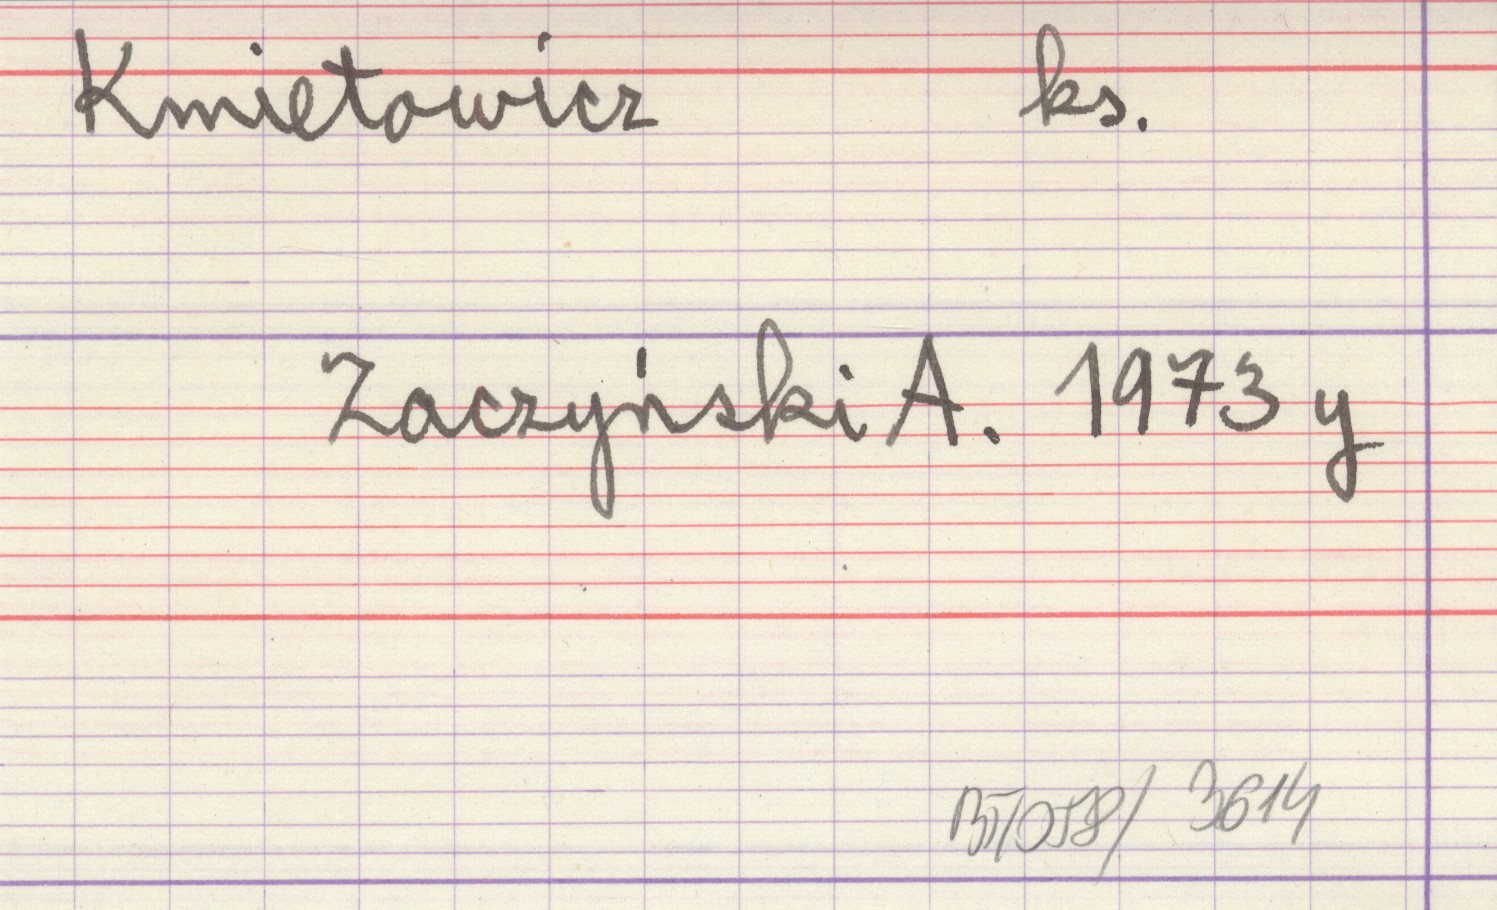 Kmietowicz ks.
Zaczyński A. 1973 y
BT/058/ 3614